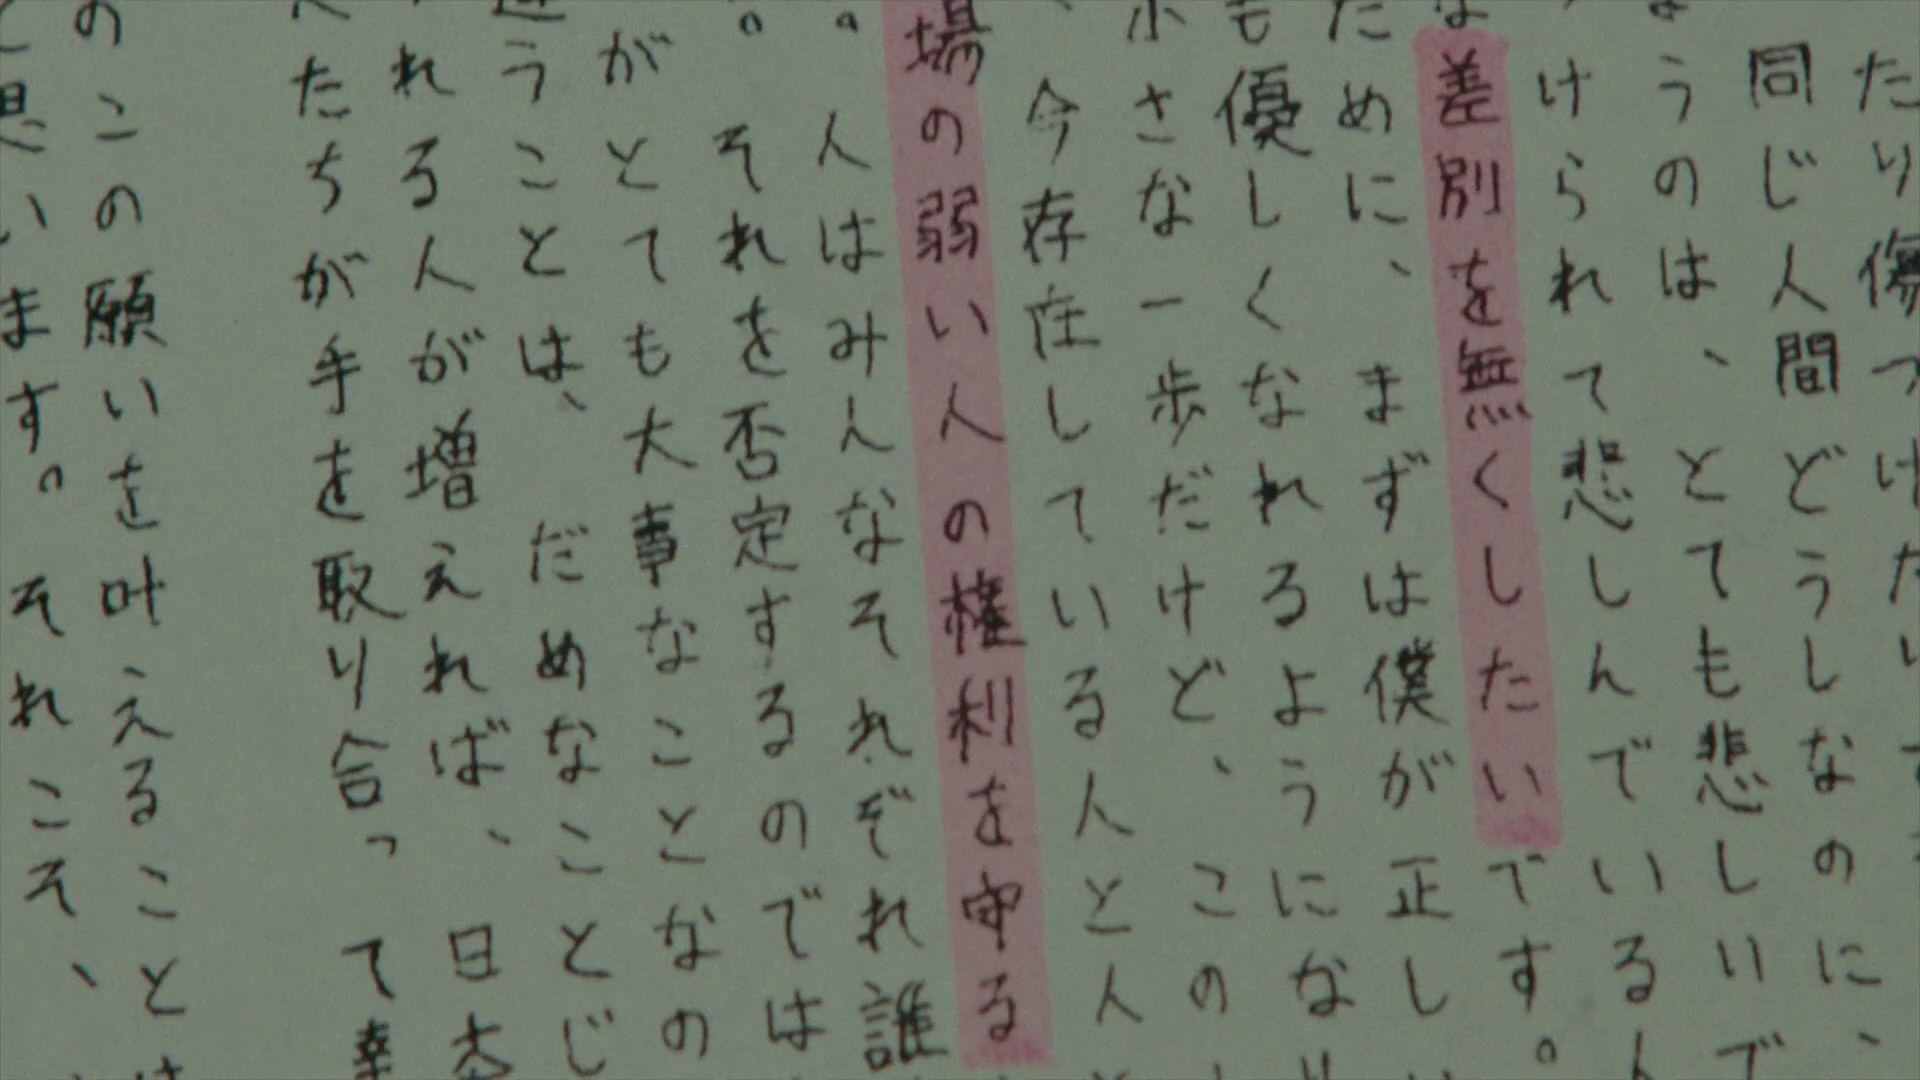 たり傷つけたり
同じ人間どうしなのに、
うのは、とても悲しいで
けられて悲しんでいる人
な差別を無くしたいです。
ために、まずは僕が正し
も優しくなれるようにな
小さな一歩だけど、この
、今存在している人と人
場の弱い人の権利を守る
。人はみんなそれぞれ誰
。それを否定するのでは
がとても大事なことなの
違うことは、だめなことじ
れる人が増えれば、日本
たちが手を取り合って幸
のこの願いを叶えること
と思います。それこそ、